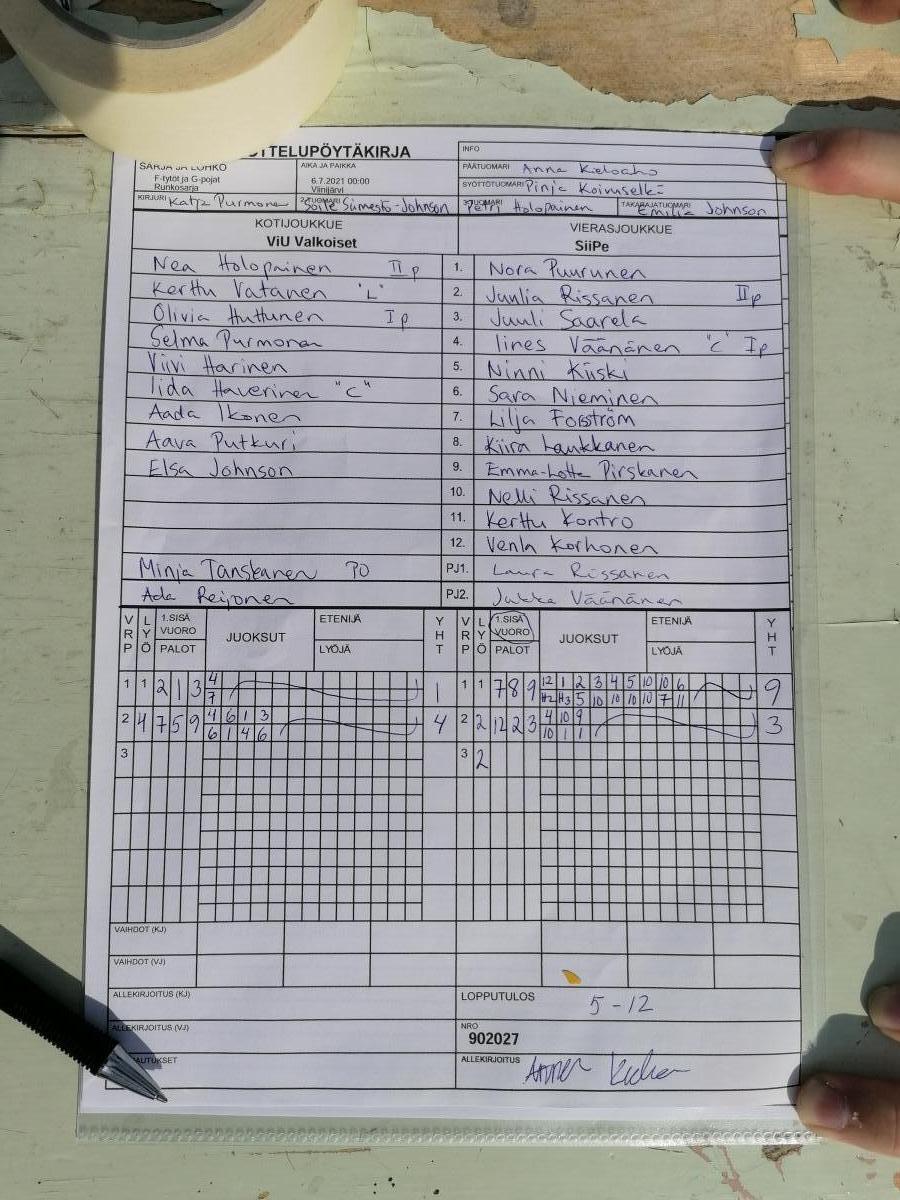 OTTELUPÖYTÄKIRJA
INFO
SARJA JA LOHKO
F-tytöt ja G-pojat
Runkosarja
AIKA JA PAIKKA
6.7.2021 00:00
Viinijärvi
PÄÄTUOMARI Anna
SYÖTTÖTUOMARI Pinja Koivuselkä
KIRJURI Katja Purmonen
2-TUOMARI Soile Sumesto-Johnson
3-TUOMARI Petri Holopainen
TAKARAJATUOMARI Emilia Johnson
KOTIJOUKKUE
ViU Valkoiset
VIERASJOUKKUE
SiiPe
Nea Holopainen II p 1. Nora Puurunen
Kerttu Vatanen "L" 2. Juulia Rissanen II p
Olivia Huttunen I p 3. Juuli Saarela
Selma Purmonen 4. Iines Väänänen "C" I p
Viivi Harinen 5. Ninni Kiiski
Iida Haverinen "C" 6. Sara Nieminen
Aada Ikonen 7. Lilja Forsström
Aava Putkuri 8. Kiira Laukkanen
Elsa Johnson 9. Emma-Lotta Pirskanen
10. Nelli Rissanen
11. Kerttu Kontro
12. Venla Korhonen
Minja Tanskanen PO PJ1. Laura Rissanen
Ada Reijonen PJ2. Jukka Väänänen
VRP LYÖ 1.SISÄ VUORO PALOT JUOKSUT ETENIJÄ LYÖJÄ YHT VRP LYÖ 1.SISÄ VUORO PALOT JUOKSUT ETENIJÄ LYÖJÄ YHT
1 1 2 1 3 4 1 1 1 7 8 9 12 1 2 3 4 5 10 10 6 9
7 H2 H3 5 10 10 10 10 7 11
2 4 7 5 9 4 6 1 3 4 2 2 12 2 3 4 10 9 3
6 1 4 6 10 1 1
3 3 2
VAIHDOT (KJ)
VAIHDOT (VJ)
ALLEKIRJOITUS (KJ)
LOPPUTULOS 5-12
ALLEKIRJOITUS (VJ)
NRO
902027
AUTUKSET
ALLEKIRJOITUS